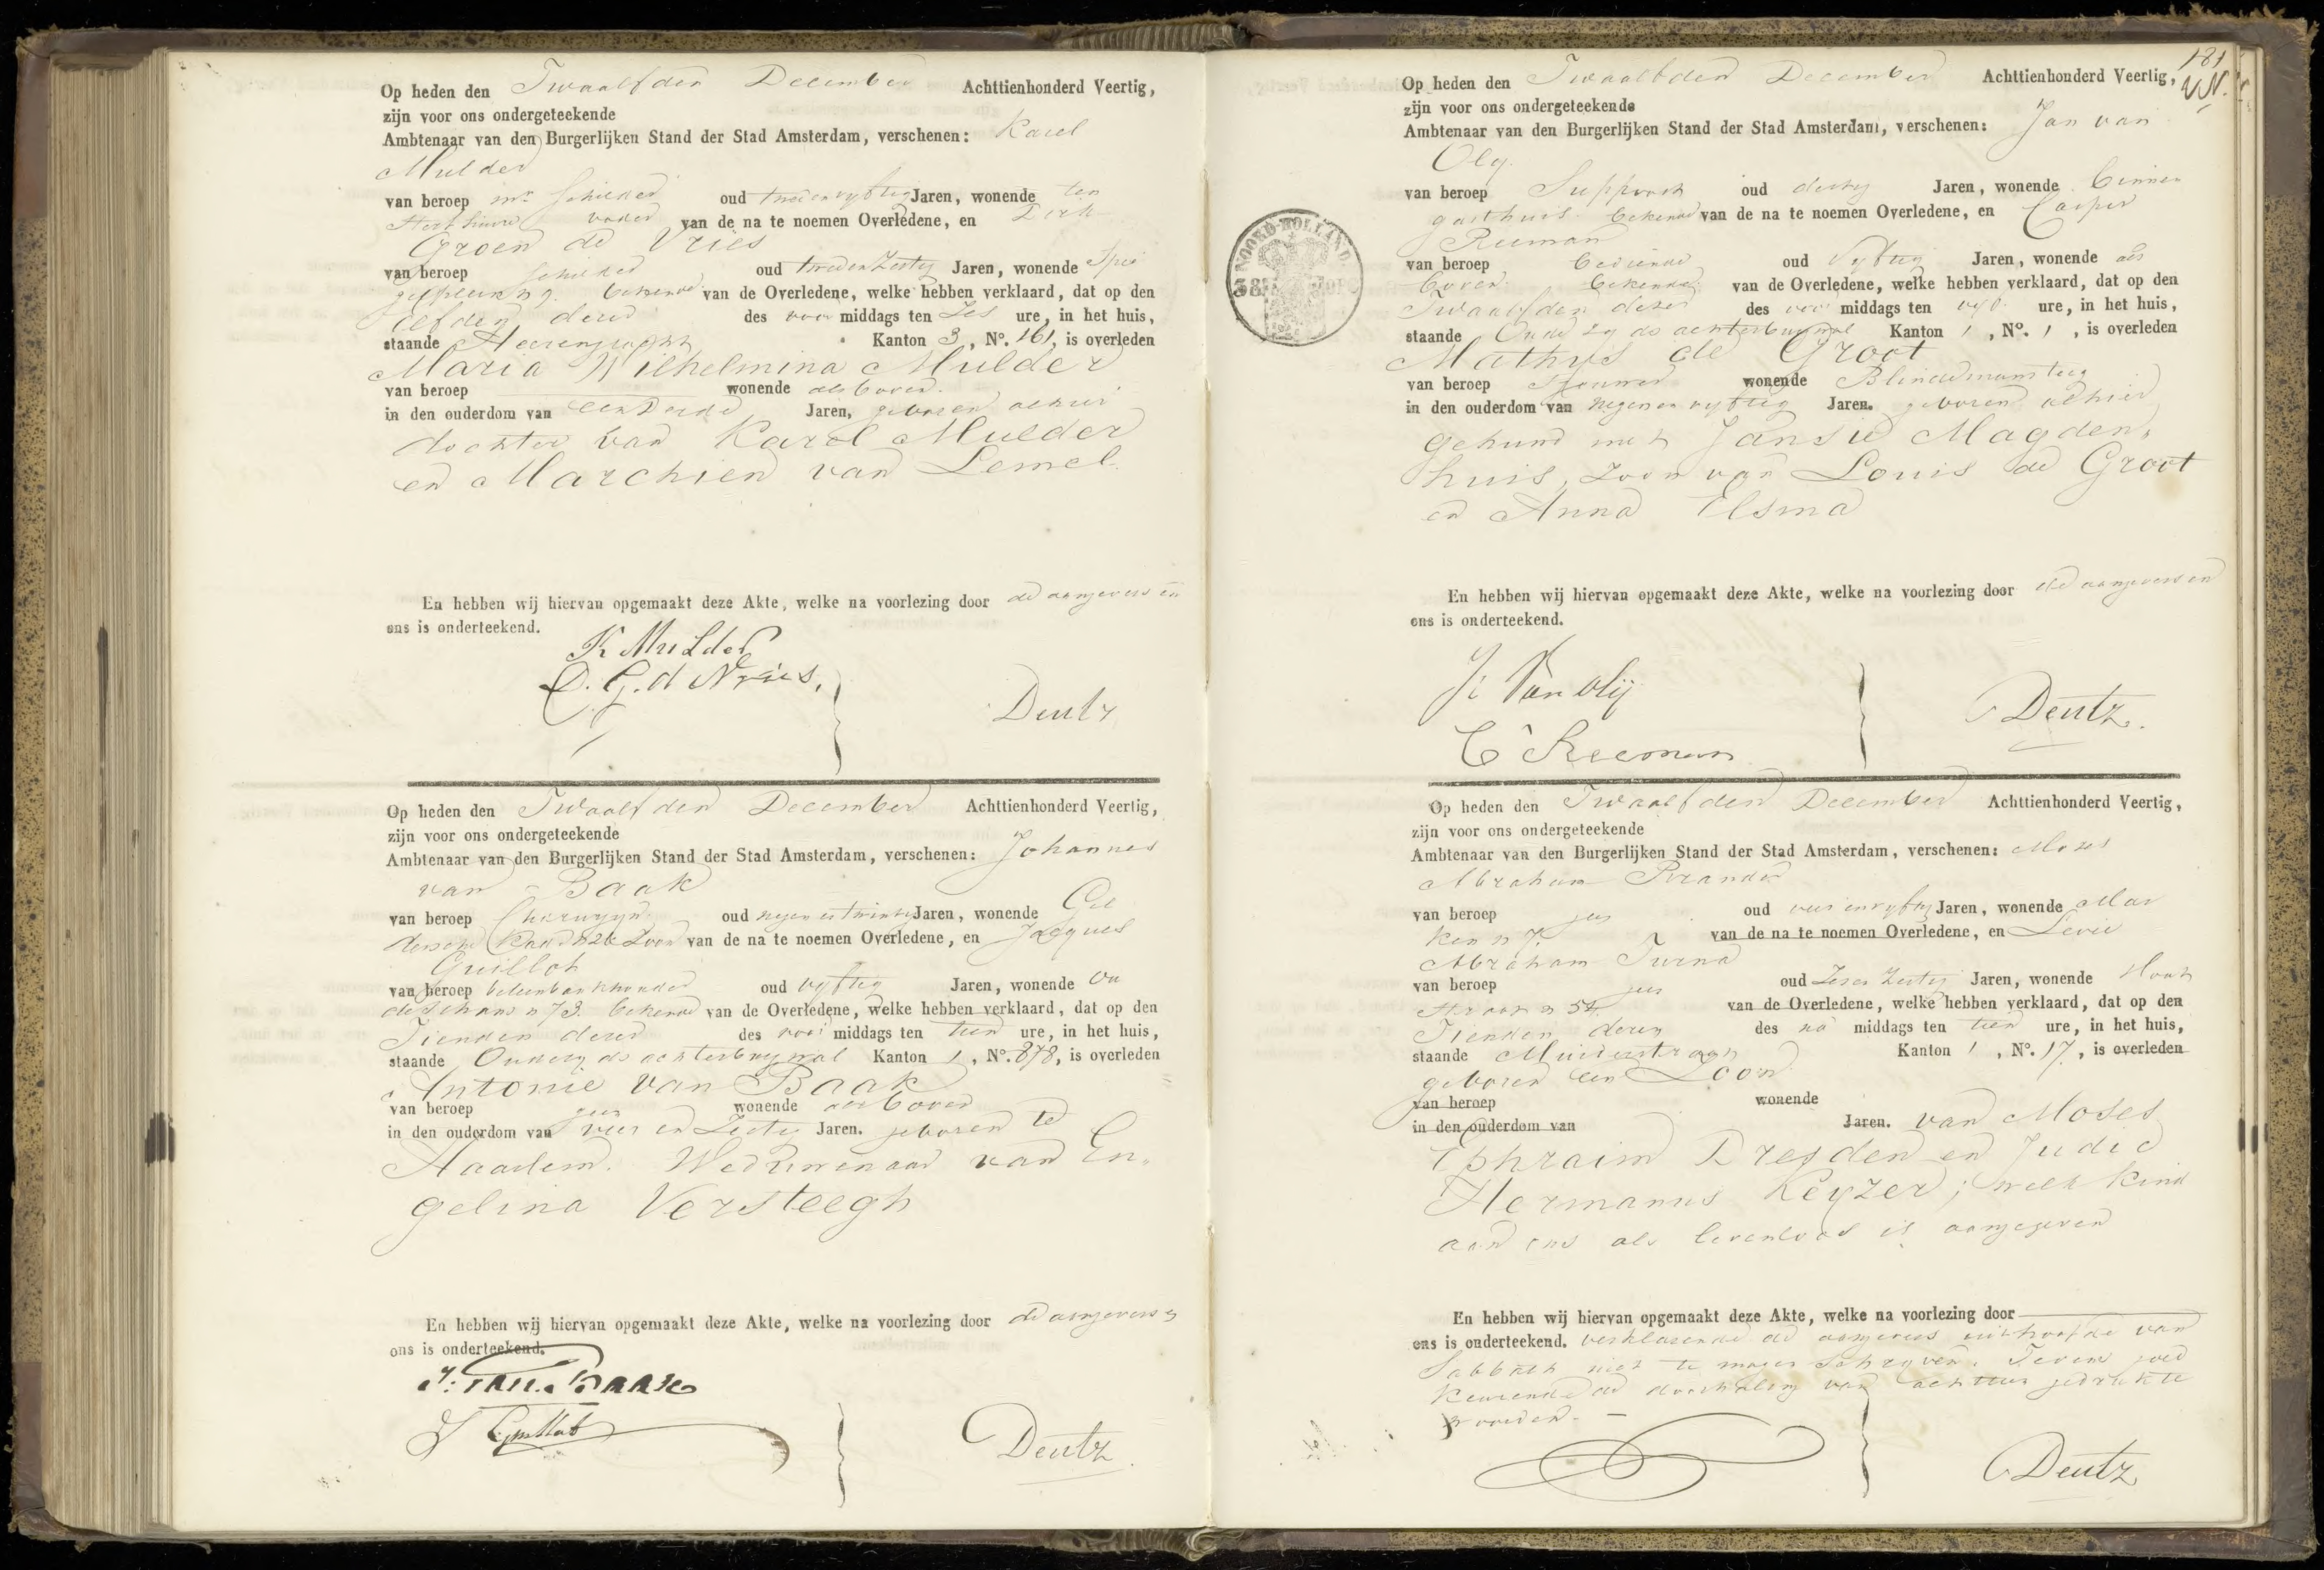 Op heden den Twaalfden December Achttienhonderd Veertig,
zijn voor ons ondergeteekende
Ambtenaar van den Burgerlijken Stand der Stad Amsterdam, verschenen: Karel
Mulder
van beroep mr Schilder oud twee en vyftig Jaren, wonende ten
Sterfhuize vader van de na te noemen Overledene, en Dirk
Groen de Vries
van beroep Schilder oud twee en Zestig Jaren, wonende Spie
gelplein n 9. bekende van de Overledene, welke hebben verklaard, dat op den
elfden dezer des voor middags ten Zes ure, in het huis,
staande Heerengracht Kanton 3, No. 161, is overleden
Maria Wilhelmina Mulder
van beroep wonende als boven.
in den ouderdom van een derde Jaren, geboren alhier
dochter van Karel Mulder
en Marchien van Lemel.
En hebben wij hiervan opgemaakt deze Akte, welke na voorlezing door de aangevers en
ons is onderteekend.
K Mulder
D. G. d Vries.
Deutz
Op heden den Twaalfden December Achttienhonderd Veertig,
zijn voor ons ondergeteekende
Ambtenaar van den Burgerlijken Stand der Stad Amsterdam, verschenen: Johannes
van Baak
van beroep Chirurgyn oud negen en twintig Jaren, wonende Gel
dersche Kade n 26 Zoon van de na te noemen Overledene, en Jacques
Guillot
van beroep beleenbankhouder oud vyftig Jaren, wonende Ou
de Schans n 73. bekende van de Overledene, welke hebben verklaard, dat op den
Tienden dezer des voor middags ten tien ure, in het huis,
staande Oudezyds achterburgwal Kanton 1, No. 878, is overleden
Antonie van Baak
van beroep geen wonende als boven
in den ouderdom van vier en Zestig Jaren. geboren te
Haarlem. Weduwenaar van En„
gelina Versteegh
En hebben wij hiervan opgemaakt deze Akte, welke na voorlezing door de aangevers en
ons is onderteekend.
J: van Baak
J Guillot
Deutz.
181
VN.
Op heden den Twaalfden December Achttienhonderd Veertig,
zijn voor ons ondergeteekende
Ambtenaar van den Burgerlijken Stand der Stad Amsterdam, verschenen: Jan van
Oly
van beroep Suppoost oud dertig Jaren, wonende binnen
gasthuis. bekende van de na te noemen Overledene, en Casper
Reeman
van beroep bediende oud Vyftig Jaren, wonende als
boven bekende van de Overledene, welke hebben verklaard, dat op den
Twaalfden dezer des voor middags ten vyf ure, in het huis,
staande Oude Zyds achterburgwal Kanton 1, No. 1, is overleden
Mathys de Groot
van beroep Sjouwer wonende Blindemansteeg
in den ouderdom van Negen en vyftig Jaren. geboren alhier
gehuwd met Jansje Magden„
huis, Zoon van Louis de Groot
en Anna Elsma
NOORD-HOLLAND
En hebben wij hiervan opgemaakt deze Akte, welke na voorlezing door de aangevers en
ons is onderteekend.
J: Van Olij
C Reeman
Deutz.
Op heden den Twaalfden December Achttienhonderd Veertig,
zijn voor ons ondergeteekende
Ambtenaar van den Burgerlijken Stand der Stad Amsterdam, verschenen: Mozes
Abraham Brander
van beroep geen oud vier en vyftig Jaren, wonende Mar
ken n 7. van de na te noemen Overledene, en Levie
Abraham Turna
van beroep geen oud Zes en Zestig Jaren, wonende Hout
Straat n 54. van de Overledene, welke hebben verklaard, dat op den
Tienden dezer des na middags ten tien ure, in het huis,
staande Muiderstraat Kanton 1, No. 17, is overleden
geboren een Zoon
van beroep wonende
in den ouderdom van Jaren. van Moses
Ephraim Dresden en Judic
Hermanus Keyzer; welk kind
aan ons als levenloos is aangegeven
En hebben wij hiervan opgemaakt deze Akte, welke na voorlezing door
ons is onderteekend. verklarende de aangevers uit hoofde van
Sabbath niet te mogen Schryven. Tevens goed
keurende de doorhaling van achttien gedrukte
woorden.
Deutz